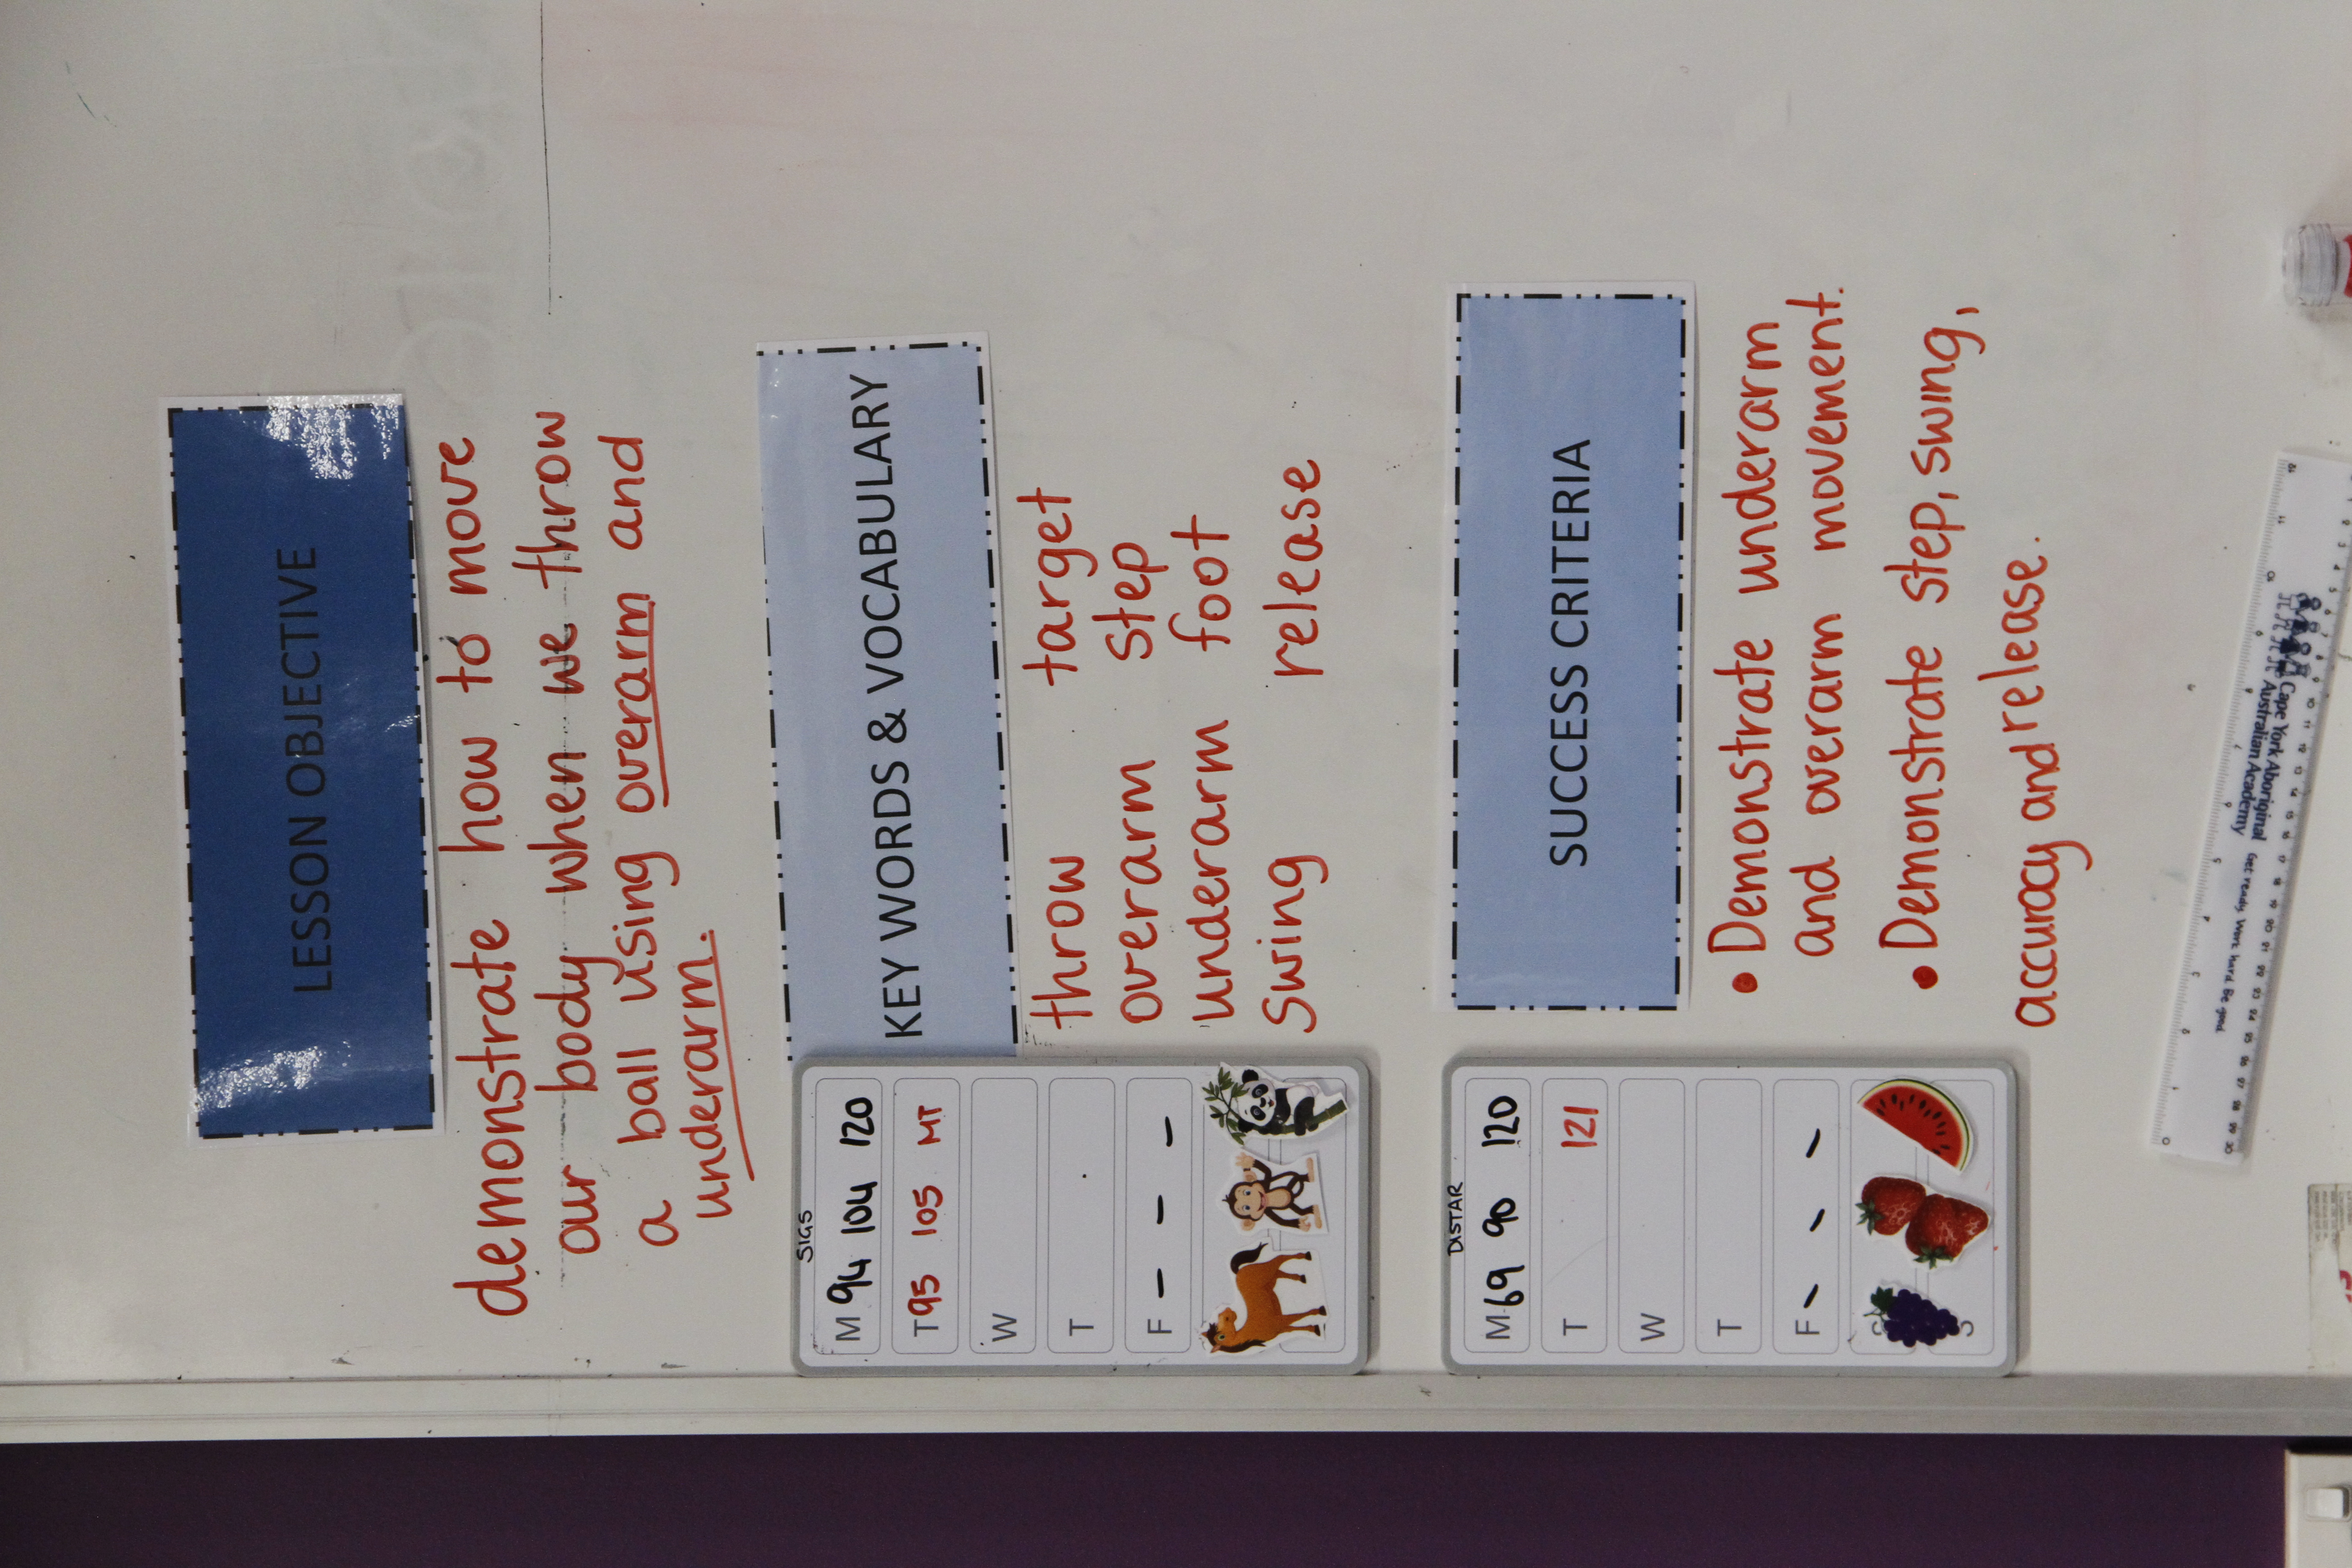 LESSON OBJECTIVE
demonstrate how to move
our body when we throw
a ball using overarm and
underarm.
KEY WORDS & VOCABULARY
throw target
overarm step
underarm foot
swing release
SUCCESS CRITERIA
• Demonstrate underarm
and overarm movement.
• Demonstrate step, swing,
accuracy and release.
SIGS
M 94 104 120
T 95 105 MT
W
T
F - - -
DISTAR
M 69 90 120
T 121
W
T
F - - -
S
Cape York Aboriginal
Australian Academy
Get ready Work hard Be good